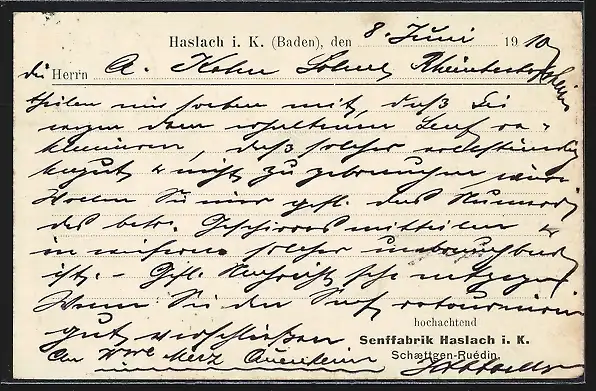 Haslach i. K. (Baden), den 8. Juni 1910
die Herrn A. Kohn Söhne, Rheinbischofsheim
theilen mir soeben mit, daß Sie
wegen dem erhaltenen Senf re-
klamieren, daß solcher vollständig
& nicht zu gebrauchen wäre
Wollen Sie mir gefl. das Numero
des betr. Geschirres mitteilen &
in wiefern solcher unbrauchbar
ist. - Gefl. Nachricht sehe entgegen
Wenn Sie den Senf retournieren
gut verschließen
hochachtend
Senffabrik Haslach i. K.
Schættgen-Ruédin.